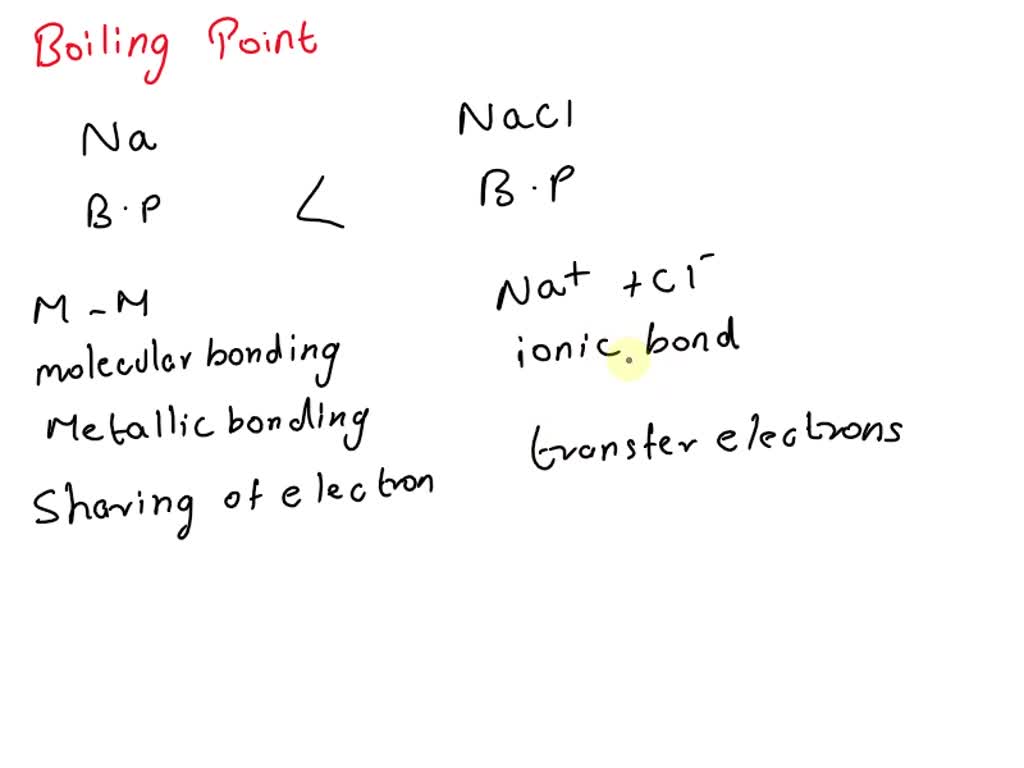 Boiling Point
Na
B.P
<
NaCl
B.P
M-M
molecular bonding
Metallic bonding
Sharing of electron
Na+ + Cl-
ionic bond
transfer electrons